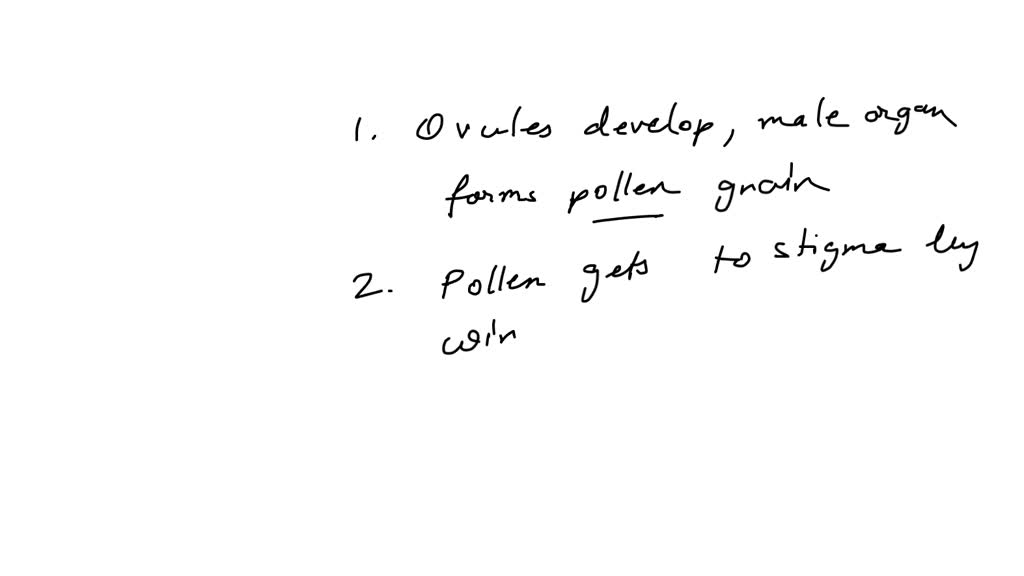 1. Ovules develop, male organ
forms pollen grain
2. Pollen gets to stigma by
win